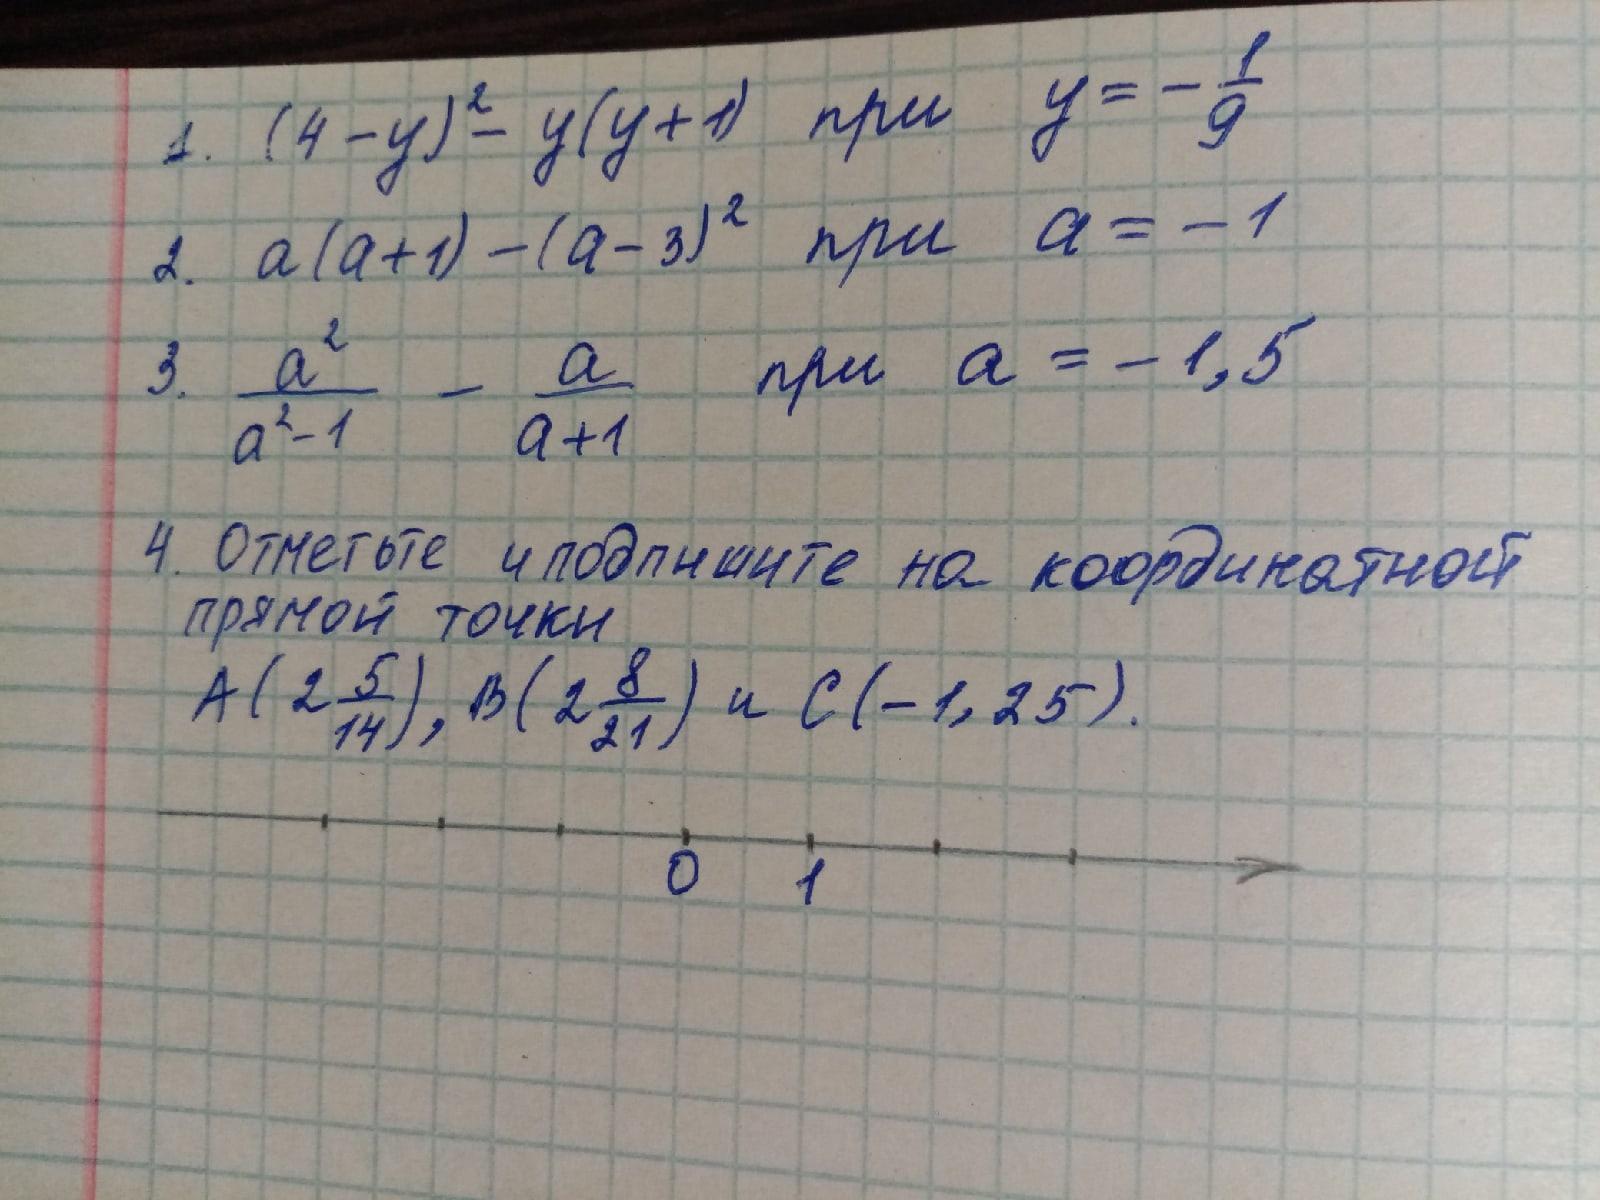 1. (4-y)² - y(y+1) при y = -1/9
2. a(a+1) - (a-3)² при a = -1
3. a²/(a²-1) - a/(a+1) при a = -1,5
4. Отметьте и подпишите на координатной
прямой точки
A(2 5/14), B(2 8/21) и C(-1,25).
0 1